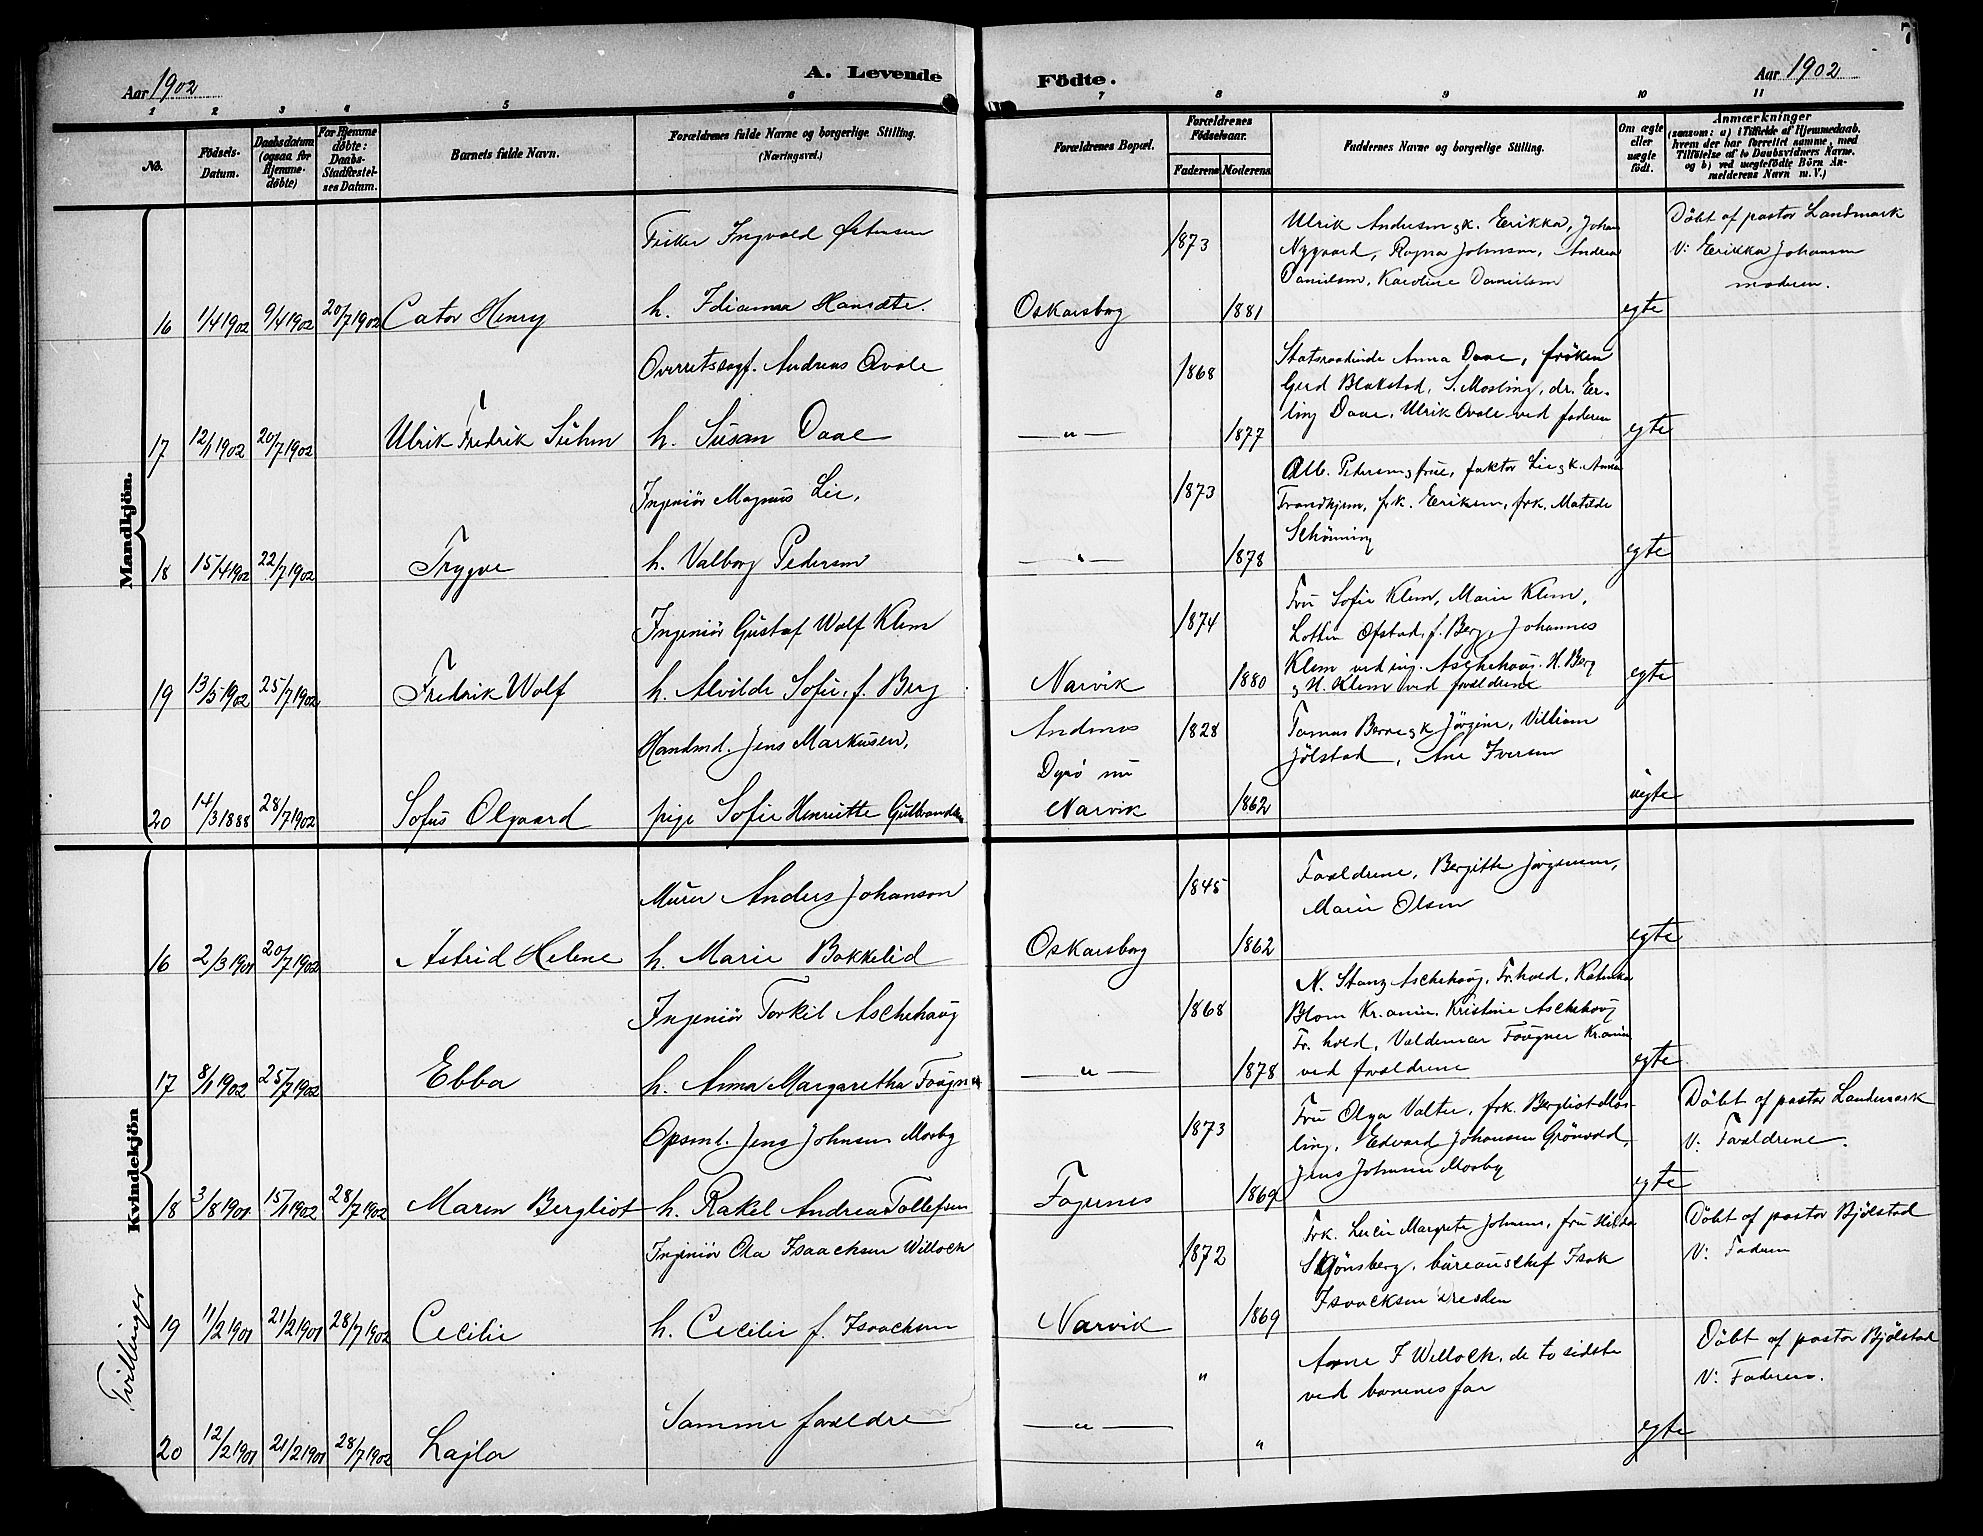 7
Aar 1902
A. Levende
Födte.
Aar 1902
1 2 3 4 5 6 7 8 9 10 11
No.
Födsels-
Datum.
Daabsdatum
(ogsaa for
Hjemme-
döbte)
For Hjemme
döbte:
Daabs-
Stadfæstel-
ses Datum.
Barnets fulde Navn.
Forældrenes fulde Navne og borgerlige Stilling.
(Næringsvei.)
Forældrenes Bopæl.
Forældrenes
Födselsaar.
Faderens Moderens
Faddernes Navne og borgerlige Stilling.
Om ægte
eller
uægte
födt.
Anmærkninger
(saasom: a) i Tilfælde af Hjemmedaab.
hvem der har forrettet samme, med
Tilföielse af to Daabsvidners Navne.
og b) ved uægtefödte Börn An-
melderens Navn m. V.)
Mandkjön.
Fisker Ingvald Østensen
1873
Ulrik Andresen & k. Erikka, Johan
Nygaard, Ragna Johnsen, Andrea
Danielsen, Karoline Danielsen
Döbt af pastor Landmark
V: Erikka Johansen
moderen.
16 1/4 1902 9/4 1902 20/7 1902 Cator Henry
h. Idianna Hansdtr.
Oskarsborg
1881
egte
Overretssagf. Andreas Qvale
1868
Statsraadinde Anna Daae, fröken
Gerd Blakstad, S. Mosling, dr. Er-
ling Daae, Ulrik Qvale ved faderen
17 12/1 1902 20/7 1902 Ulrik Fredrik Suhm
h. Susan Daae
— " —
1877
egte
Ingeniör Magnus Lie,
1873
Alb. Pedersen & frue, faktor Lie & k. Anna
Trondhjem, frk. Eriksen, frk. Matilde
Schönning
18 15/4 1902 22/7 1902 Trygve
h. Valborg Pedersen
— " —
1878
egte
Ingeniör Gustaf Wolf Klem
1874
Fru Sofie Klem, Marie Klem,
Lottin Ofstad, f. Berg, Johannes
Klem ved ing. Aschehaug. H. Berg
& H. Klem ved forældrene
19 13/5 1902 25/7 1902 Fredrik Wolf
h. Alvilde Sofie, f. Berg
Narvik
1880
egte
Handmd. Jens Markusen,
Andenes
1828
Tomas Berre & k Jörgine, Villiam
Jölstad, Ane Iversen
Dyrö nu
20 14/3 1888 28/7 1902 Sofus Olgaard
pige Sofie Henriette Gulbrandsen
Narvik
1862
uegte
Kvindekjön
Murer Anders Johanson
1845
Forældrene, Bergitte Jörgensen,
Marie Olsen
16 2/3 1901 20/7 1902 Astrid Helene
h. Marie Bakkelid
Oskarsborg
1862
egte
Ingeniör Torkil Aschehaug
1868
N. Stang Aschehaug, Fr.hald, Katinka
Blom Kr.ania, Kristine Aschehoug
Fr. hald, Valdemar Fougner Kr.ania
ved forældrene
17 8/1 1902 25/7 1902 Ebba
h. Anna Margaretha Fougner
— " —
1878
egte
Opsmd. Jens Johnsen Mosby
1873
Fru Olga Valter, frk. Bergliot Mos-
ling, Edvard Johansen Grönvold,
Jens Johnsen Mosby
Döbt af pastor Landmark
V: Forældrene.
18 3/8 1901 15/1 1902 28/7 1902 Maren Bergliot
h. Rakel Andrea Tollefsen
Fagernes
1869
egte
Ingeniör Ola Isaachsen Willoch
1872
Frk. Lucie Margrete Johnsen, fru Hilda
Skjönsberg, bureauschef Isak
Isaacksen Dresden
Döbt af pastor Bjölstad
V: Faderen
Tvillinger
19 11/2 1901 21/2 1901 28/7 1902 Cecilie
h. Cecilie f. Isaachsen
Narvik
1869
Arne I Willoch, de to sidste
ved barnenes far
Döbt af pastor Bjölstad
V: Faderen.
"
20 12/2 1901 21/2 1901 28/7 1902 Lajla
Samme forældre
— " —
"
egte